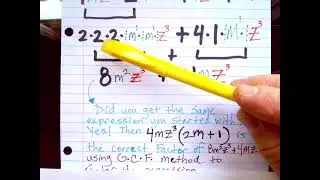 2·2·2·m·m·z³ + 4·1·m·z³
+
8m²z³ mz³
Did you get the same
expression you started with
Yes! Then 4mz³(2m+1) is
the correct factor of 8m²z³+4mz
using G.C.F. method to